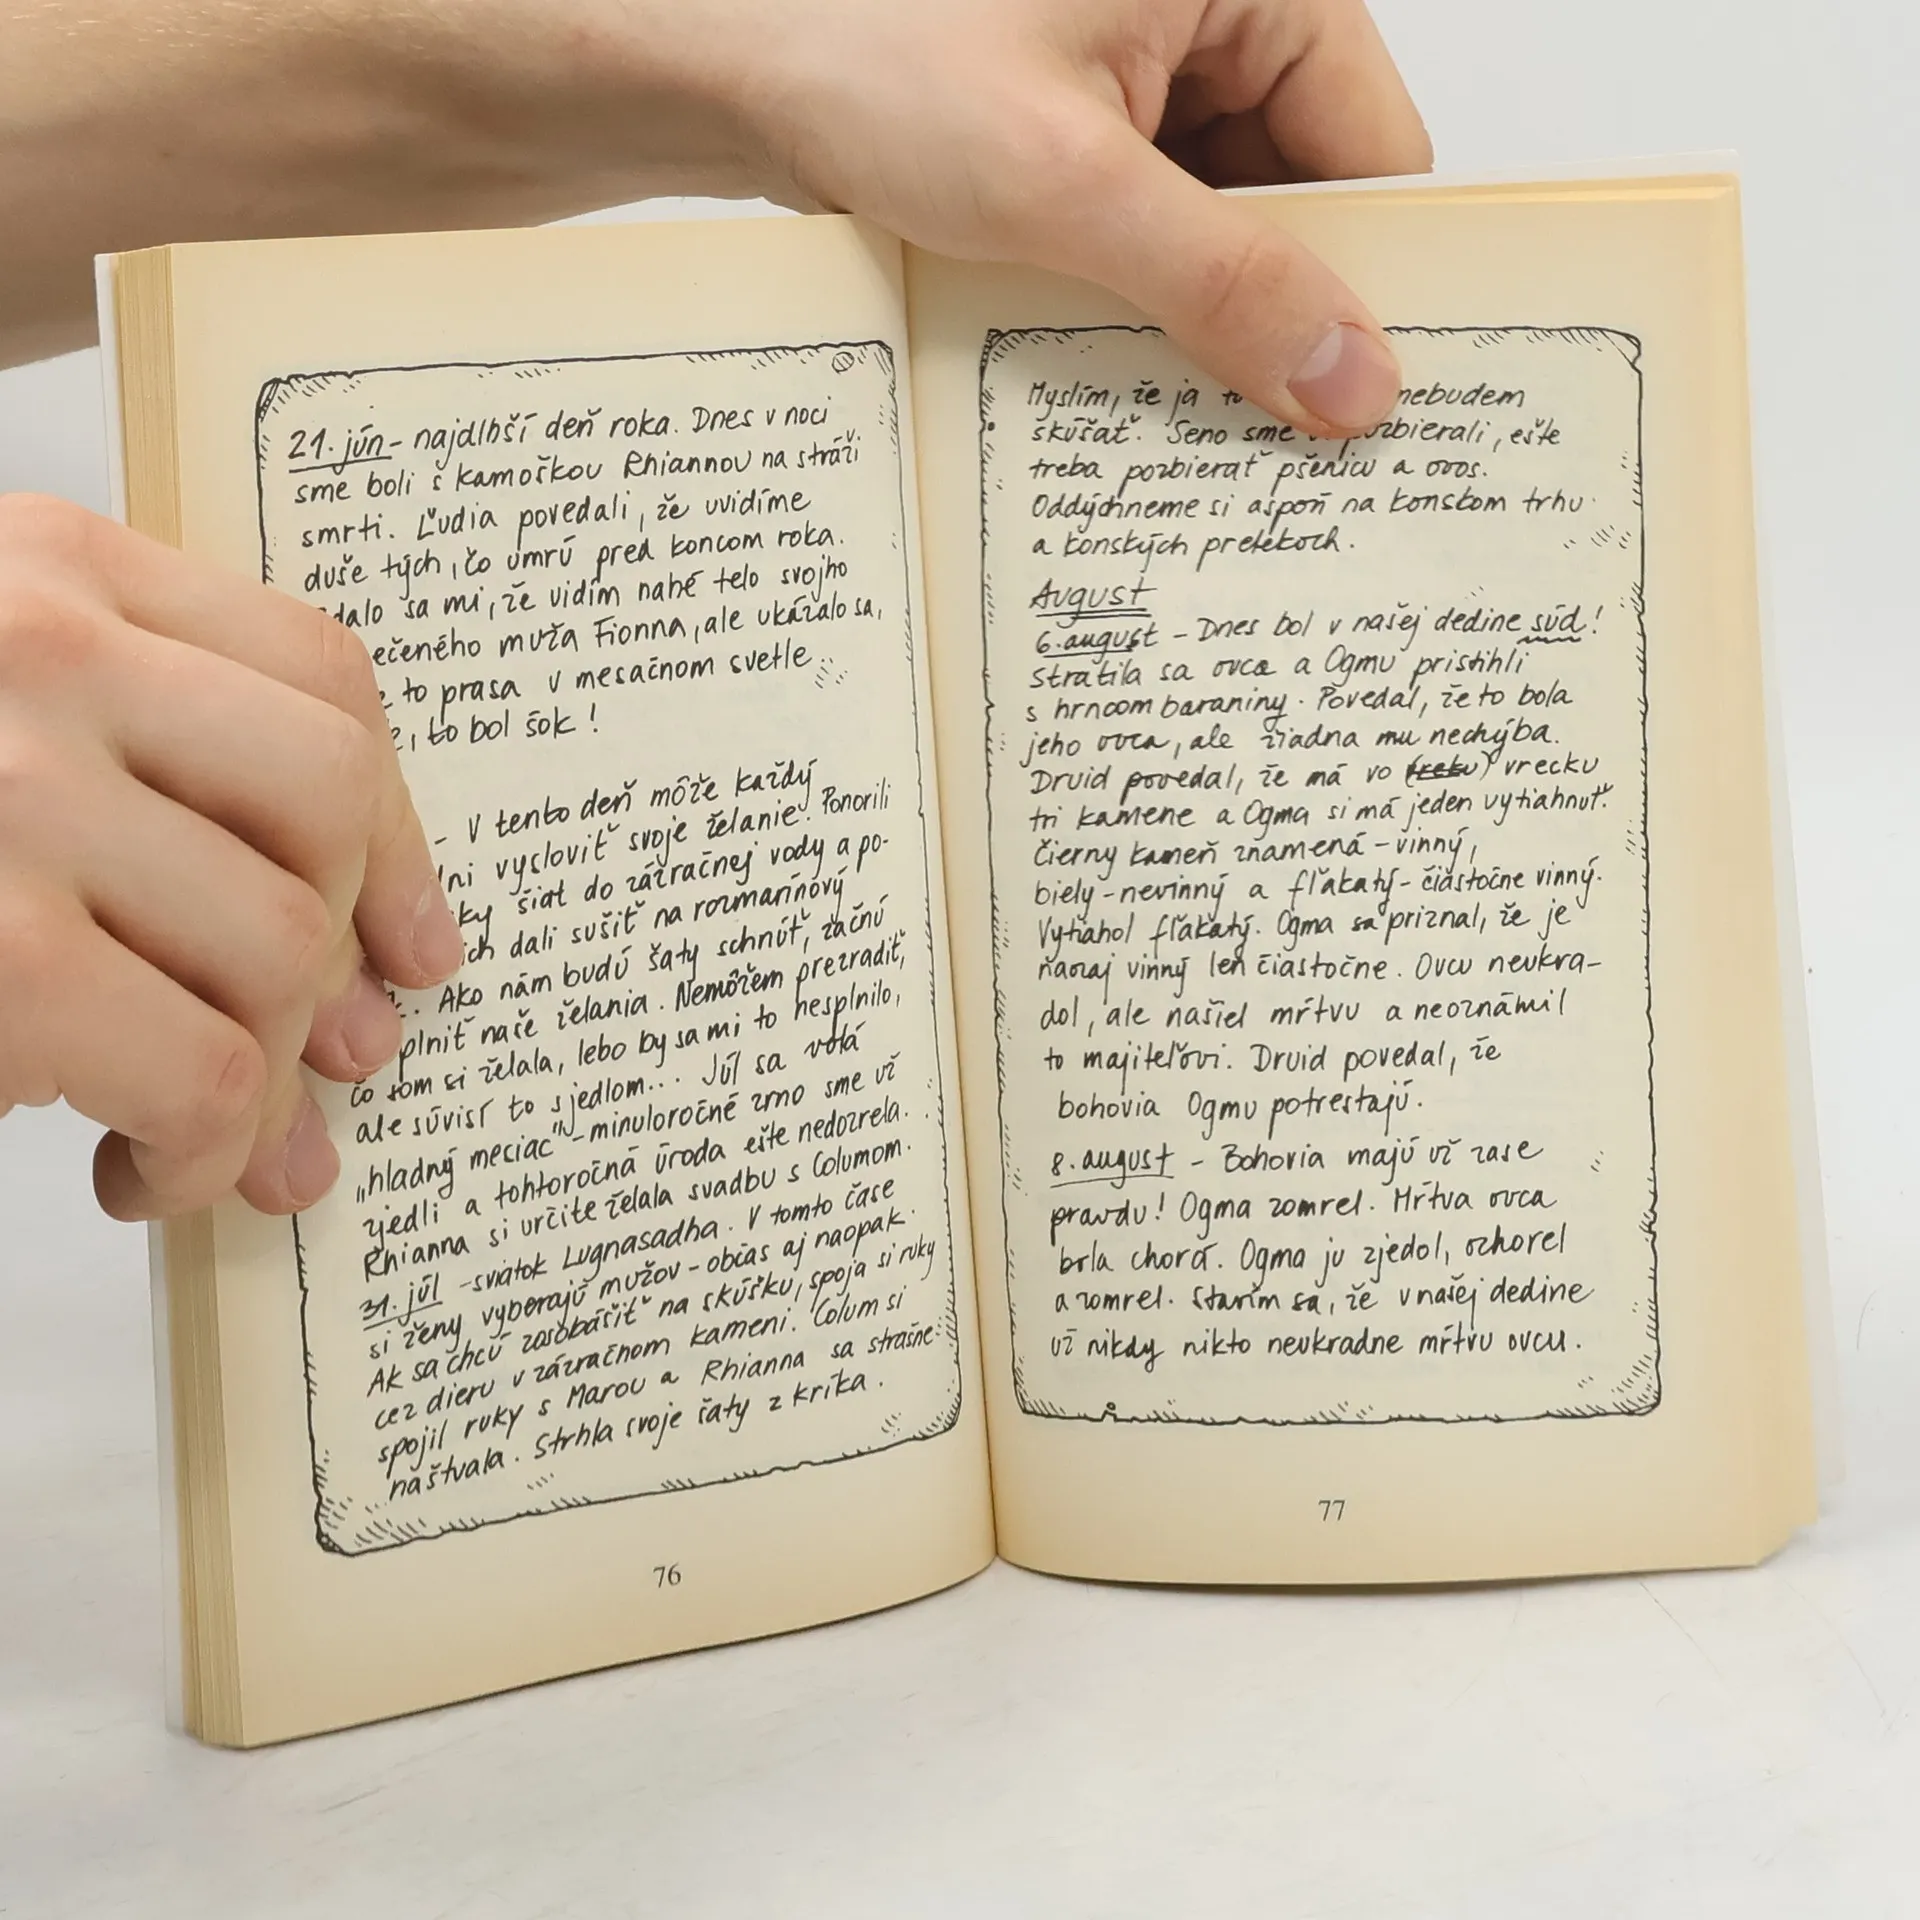 21. jún - najdlhší deň roka. Dnes v noci
sme boli s kamoškou Rhiannou na stráži
smrti. Ľudia povedali, že uvidíme
duše tých, čo umrú pred koncom roka.
dalo sa mi, že vidím nahé telo svojho
ečeného muža Fionna, ale ukázalo sa,
to prasa v mesačnom svetle.
, to bol šok!
- V tento deň môže každý
lni vysloviť svoje želanie. Ponorili
ky šiat do zázračnej vody a po-
ich dali sušiť na rozmarínový
. Ako nám budú šaty schnúť, začnú
plniť naše želania. Nemôžem prezradiť,
čo som si želala, lebo by sa mi to nesplnilo,
ale súvisí to s jedlom... Júl sa volá
„hladný mesiac" - minuloročné zrno sme už
zjedli a tohtoročná úroda ešte nedozrela.
Rhianna si určite želala svadbu s Columom.
31. júl - sviatok Lugnasadha. V tomto čase
si ženy vyberajú mužov - občas aj naopak.
Ak sa chcú zasobášiť na skúšku, spoja si ruky
cez dieru v zázračnom kameni. Colum si
spojil ruky s Marou a Rhianna sa strašne
naštvala. Strhla svoje šaty z kríka.
76
Myslím, že ja to nebudem
skúšať. Seno sme pozbierali, ešte
treba pozbierať pšenicu a ovos.
Oddýchneme si aspoň na konskom trhu
a konských pretekoch.
August
6. august - Dnes bol v našej dedine súd!
Stratila sa ovca a Ogmu pristihli
s hrncom baraniny. Povedal, že to bola
jeho ovca, ale žiadna mu nechýba.
Druid povedal, že má vo (vreku) vrecku
tri kamene a Ogma si má jeden vytiahnuť.
Čierny kameň znamená - vinný,
biely - nevinný a fľakatý - čiastočne vinný.
Vytiahol fľakatý. Ogma sa priznal, že je
naozaj vinný len čiastočne. Ovcu neukra-
dol, ale našiel mŕtvu a neoznámil
to majiteľovi. Druid povedal, že
bohovia Ogmu potrestajú.
8. august - Bohovia majú už zase
pravdu! Ogma zomrel. Mŕtva ovca
bola chorá. Ogma ju zjedol, ochorel
a zomrel. Stavím sa, že v našej dedine
už nikdy nikto neukradne mŕtvu ovcu.
77